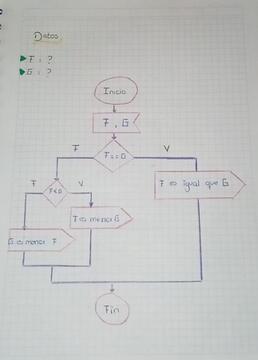 Datos
F : ?
G : ?
Inicio
F , G
F V
F == G
F es igual que G
F V
F < G
F es menor G
G es menor F
Fin